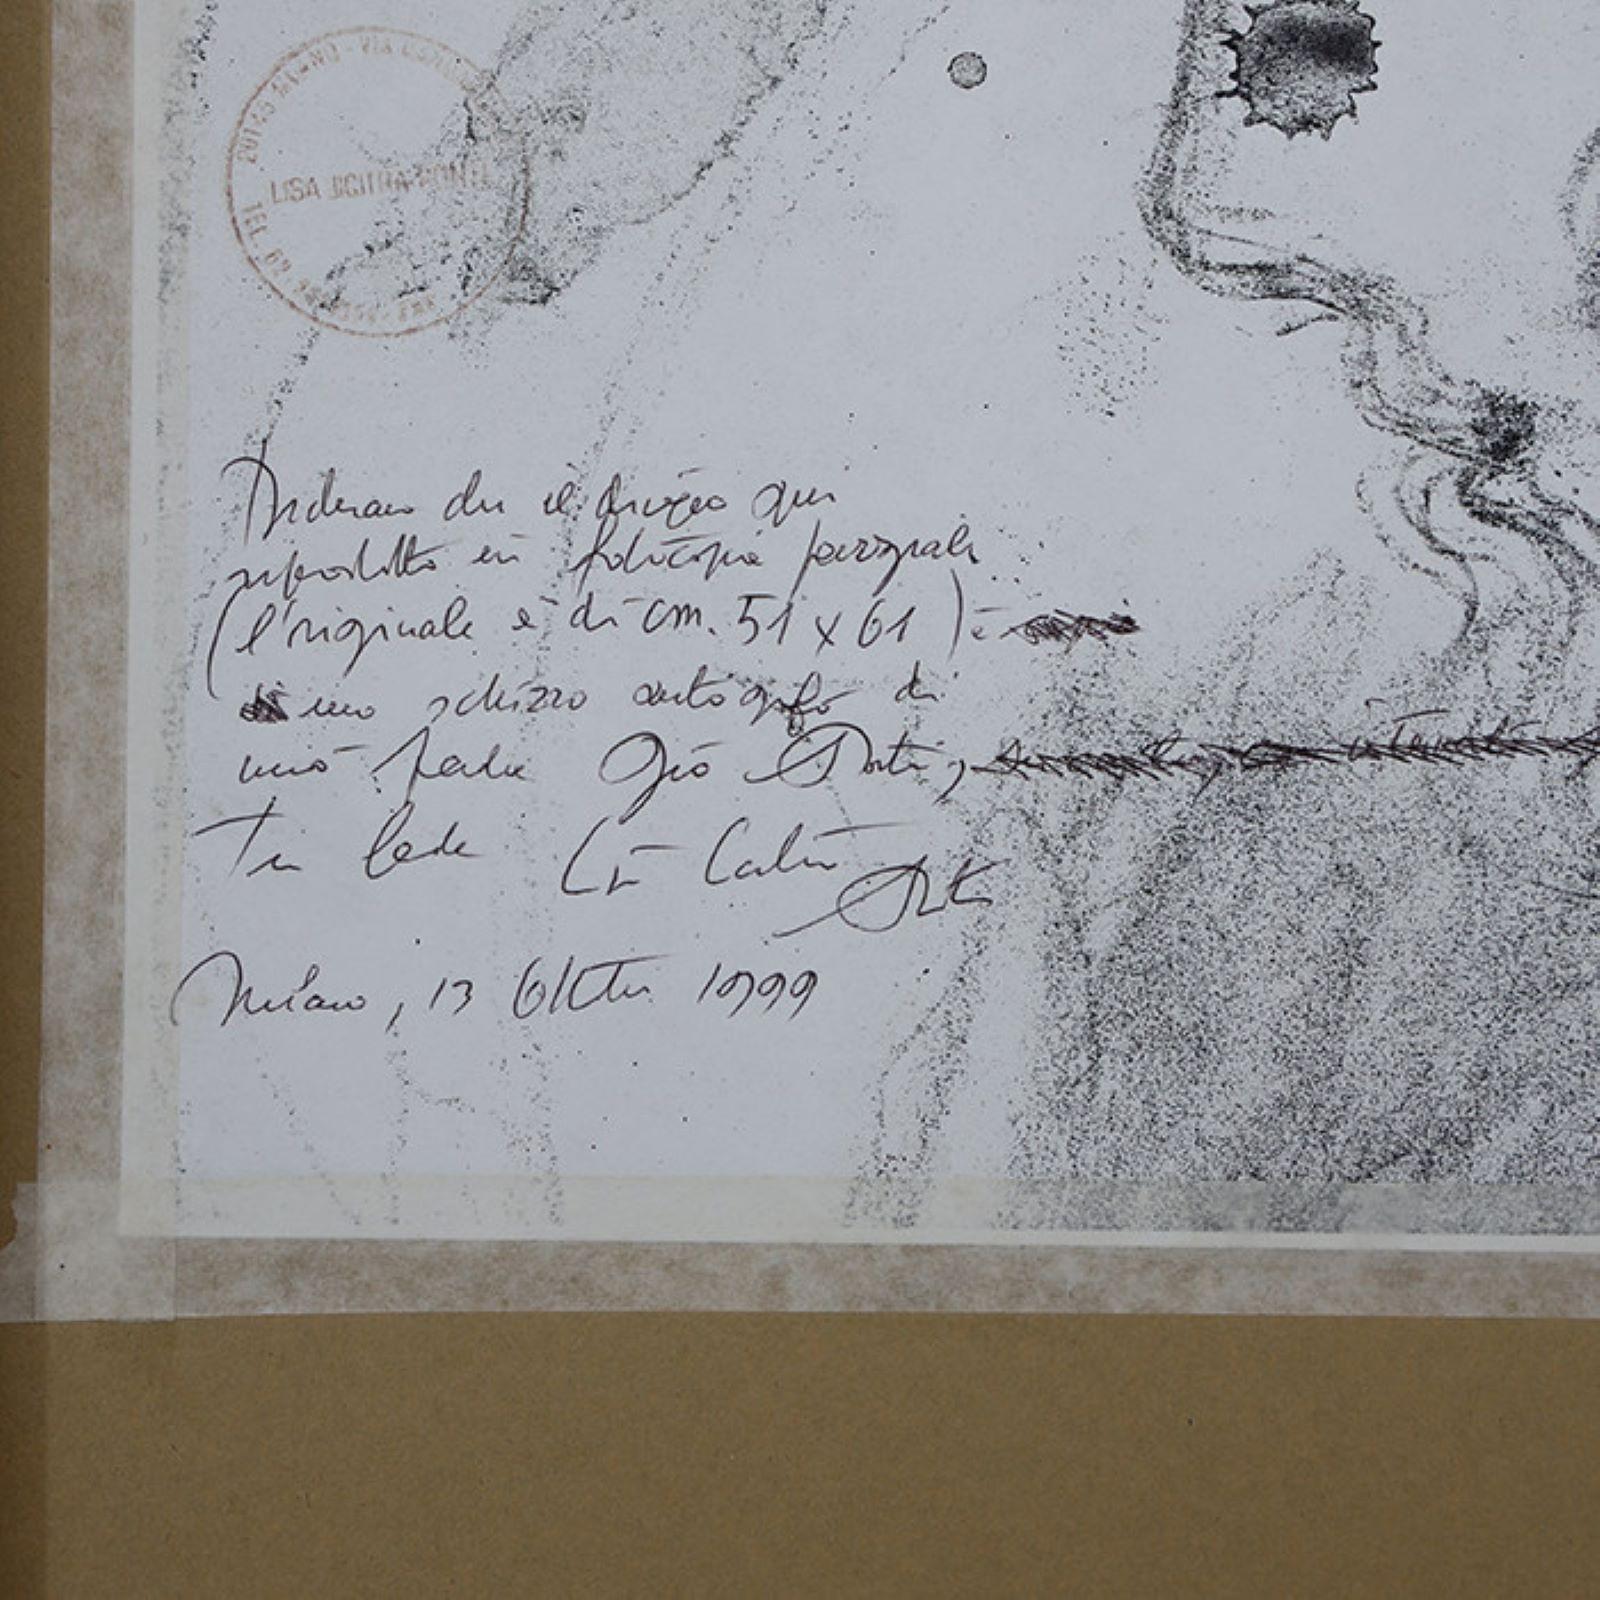 20123 MILANO - VIA
LISA LICITRA PONTI
TEL. 02
FAX
Dichiaro che il disegno qui
riprodotto in fotocopia parziale
(l'originale è di cm. 51 x 61) è
uno schizzo autografo di
mio padre Giò Ponti,
In fede Lisa Licitra
Ponti
Milano, 13 Ottobre 1999